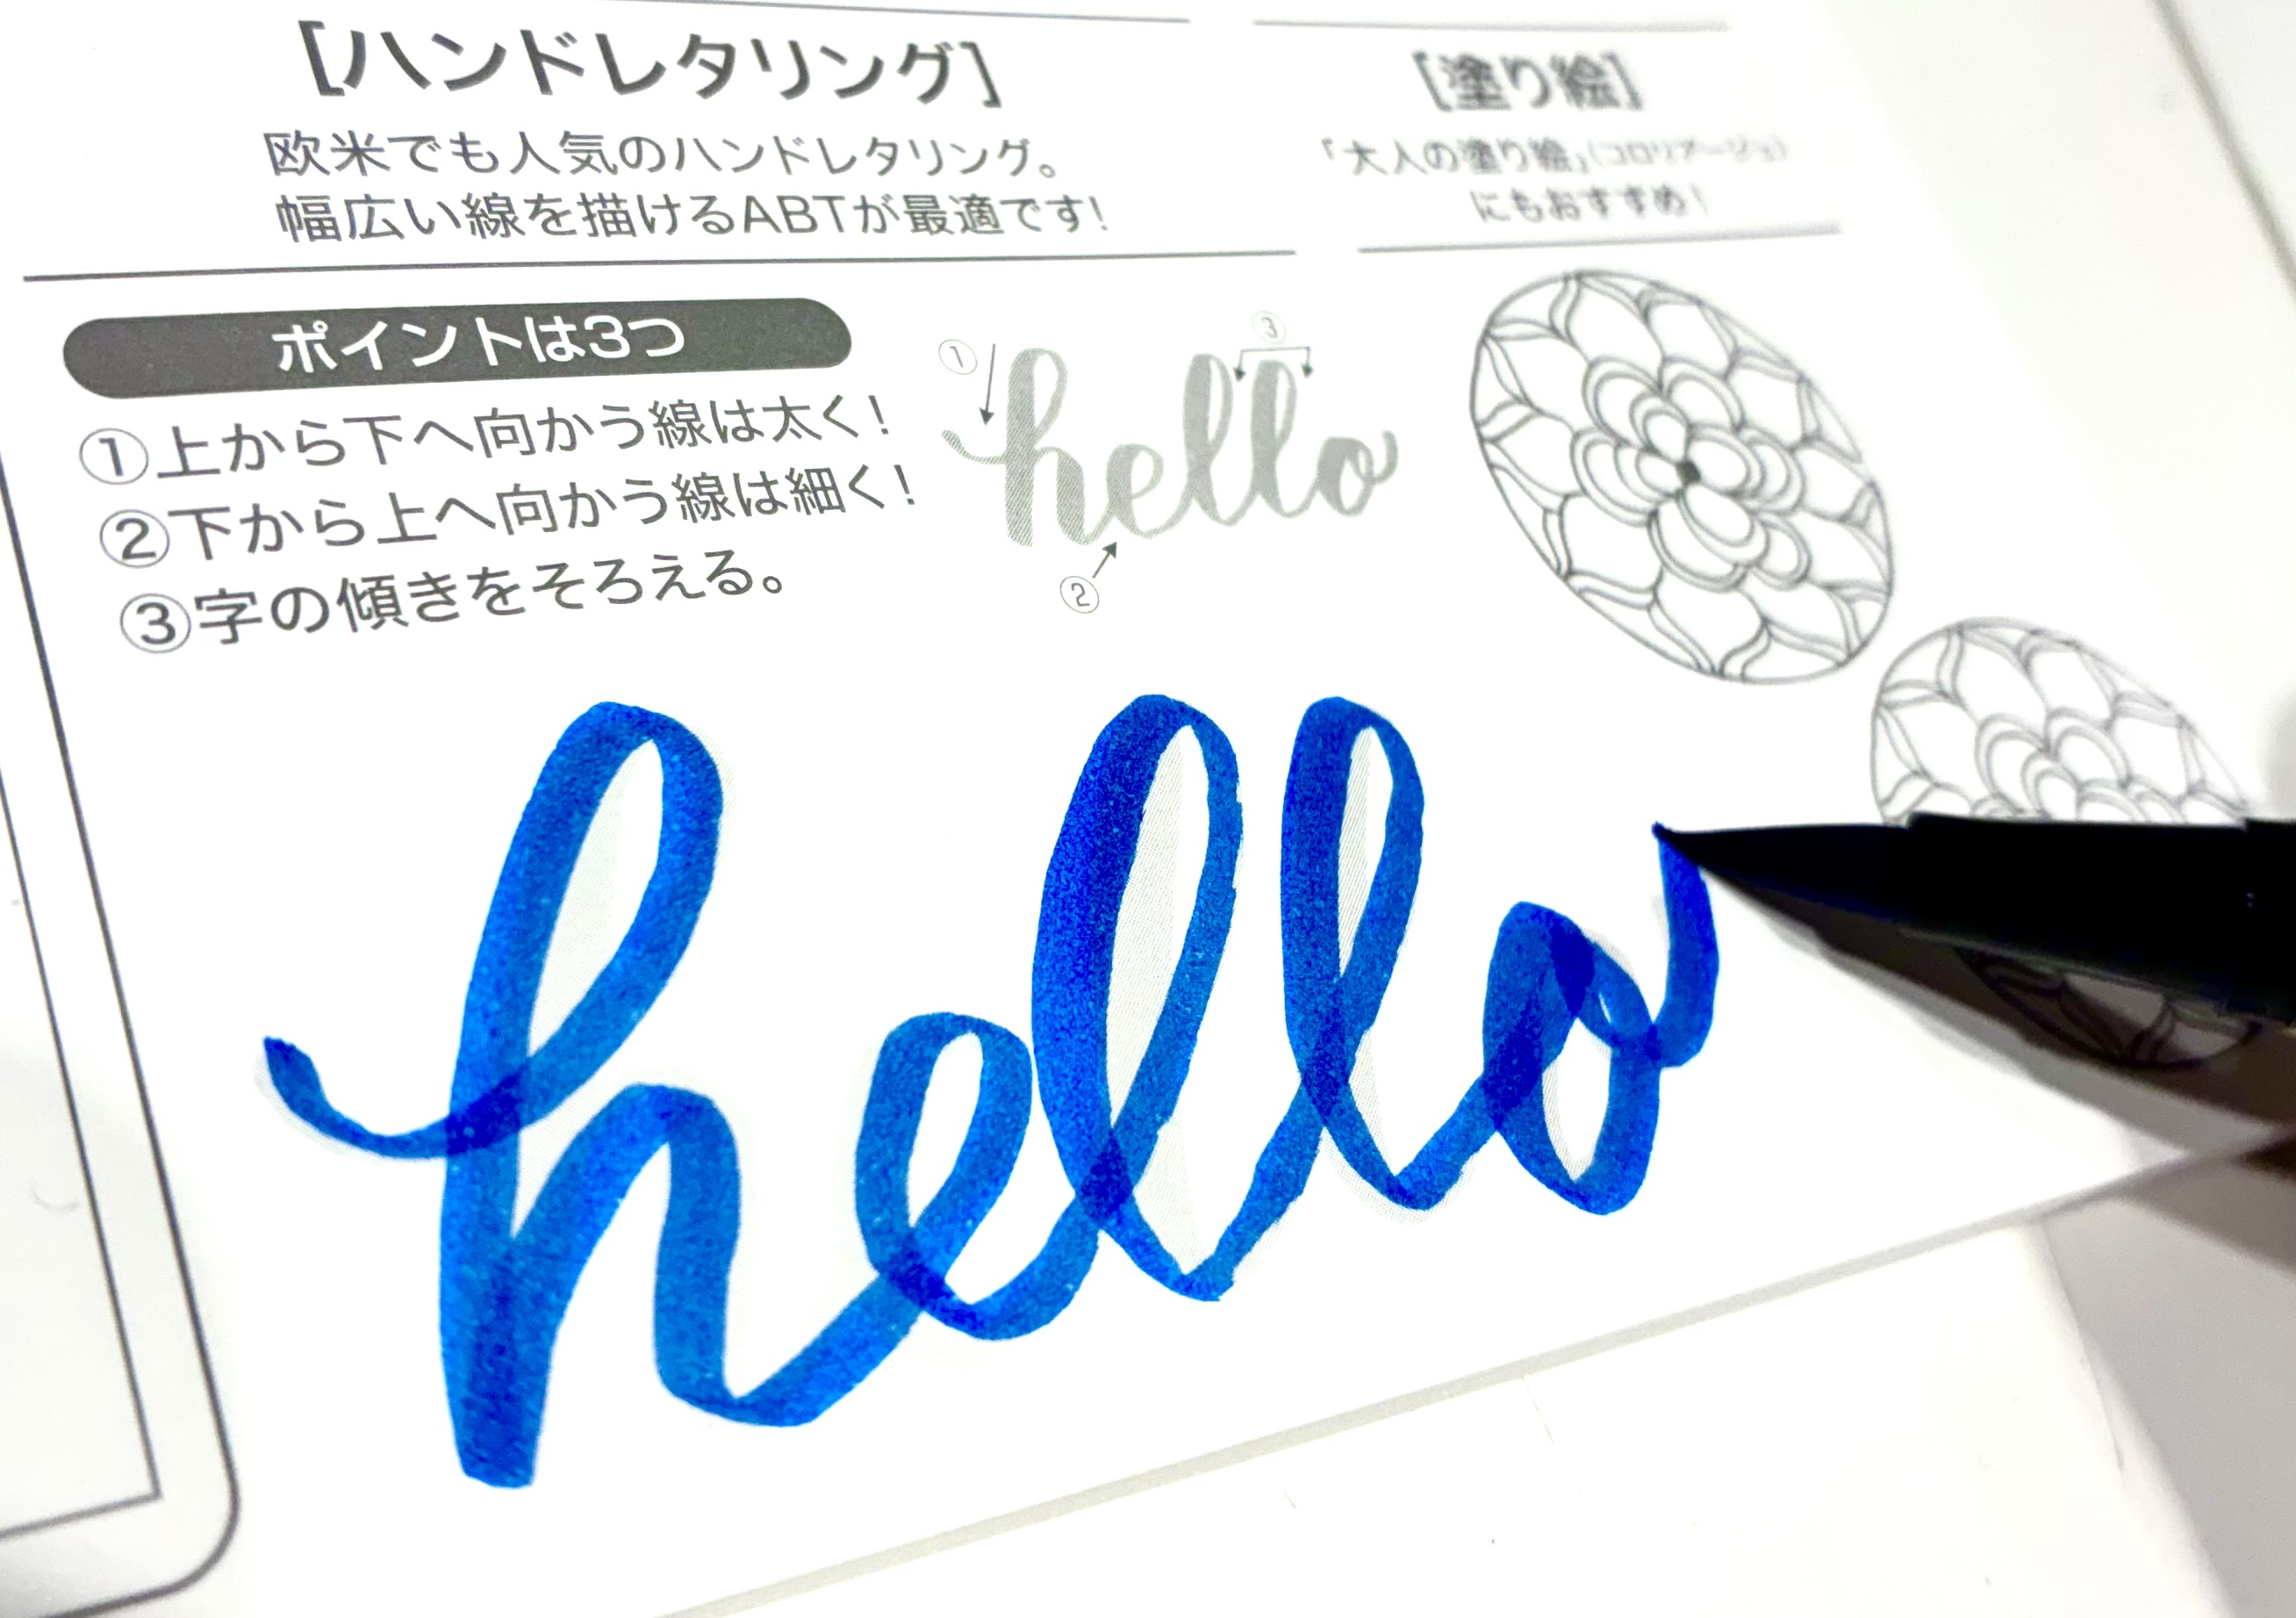 [ハンドレタリング]
欧米でも人気のハンドレタリング。
幅広い線を描けるABTが最適です!
ポイントは3つ
①上から下へ向かう線は太く!
②下から上へ向かう線は細く!
③字の傾きをそろえる。
① ③
hello
②
hello
[塗り絵]
「大人の塗り絵」(コロリアージュ)
にもおすすめ!